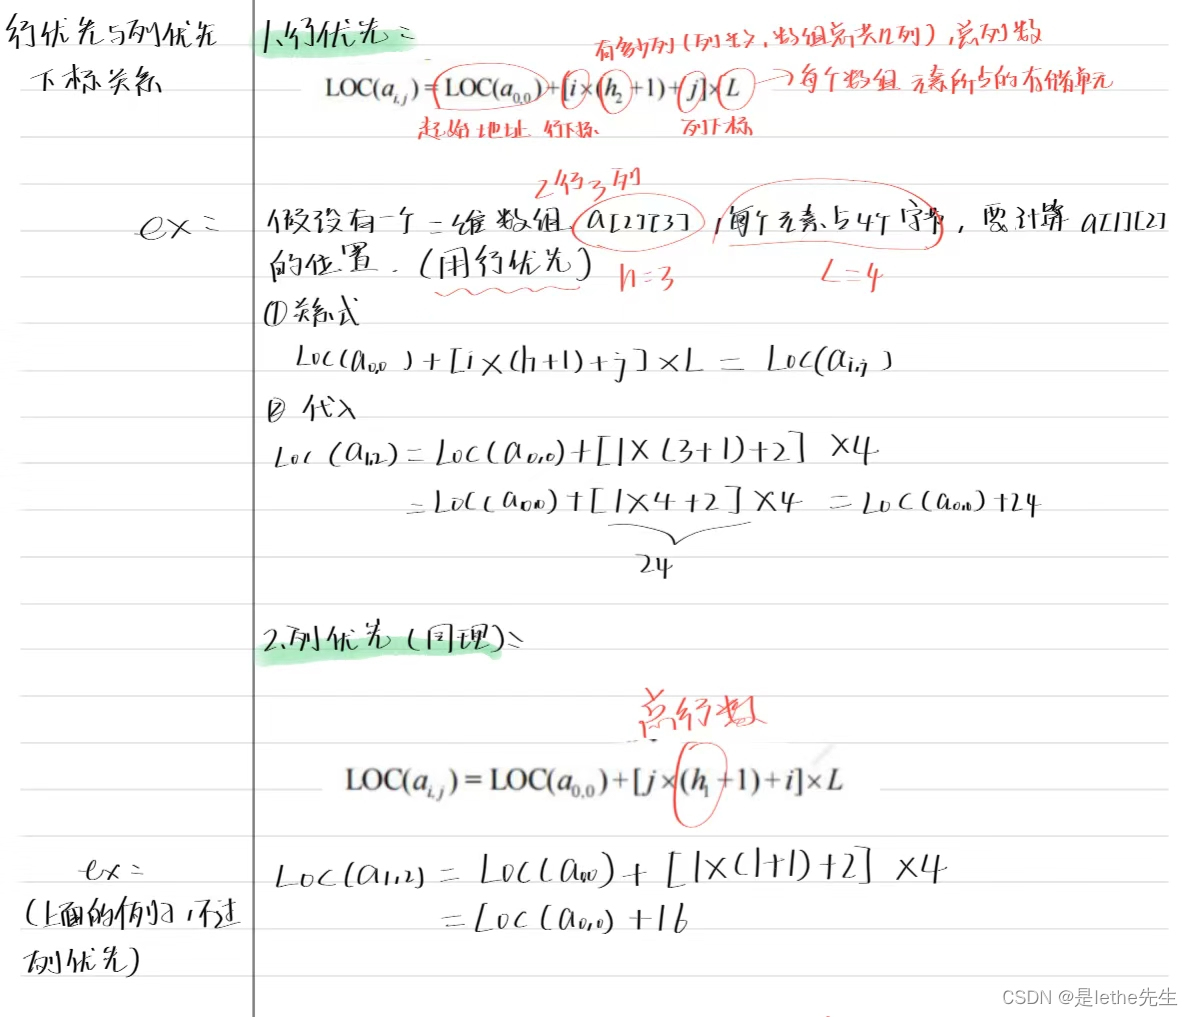 行优先与列优先
下标关系
1.行优先:
有多少列(列生),数组总共几列),总列数
LOC(a_{i,j})=LOC(a_{0,0})+[i×(h_2+1)+j]×L
→每个数组元素所占的存储单元
起始地址 行下标 列下标
2行3列
ex: 假设有一个二维数组a[2][3],每个元素占4个字节,要计算a[1][2]
的位置.(用行优先)
h=3 L=4
①关系式
Loc(a_{0,0})+[i×(h+1)+j]×L = Loc(a_{i,j})
② 代入
Loc(a_{1,2})=Loc(a_{0,0})+[1×(3+1)+2]×4
=Loc(a_{0,0})+[1×4+2]×4 =Loc(a_{0,0})+24
24
2.列优先(同理):
总行数
LOC(a_{i,j})=LOC(a_{0,0})+[j×(h_1+1)+i]×L
ex:
(上面的例子,不过
列优先)
Loc(a_{1,2}) = Loc(a_{0,0})+[1×(1+1)+2]×4
=Loc(a_{0,0})+16
CSDN @是lethe先生